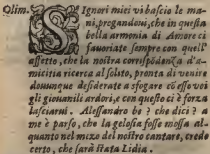 Olim. SIgnori mici vi bascio le ma
ni, pregandoui, che in questa
bella armonia di Amore ci
fauoriate sempre con quell'
affetto, che la nostra corrispondēza d'a-
micitia ricerca al solito, pronta di venire
douunque desiderate a sfogare cō esso voi
gli giouanili ardori, e con questo ci è forza
lasciarui. Alessandro be ? che dici ? a
me è parso, che la gelosia fosse mossa al-
quanto nel mezo del nostro cantare, credo
certo, che sarà stata Lidia.